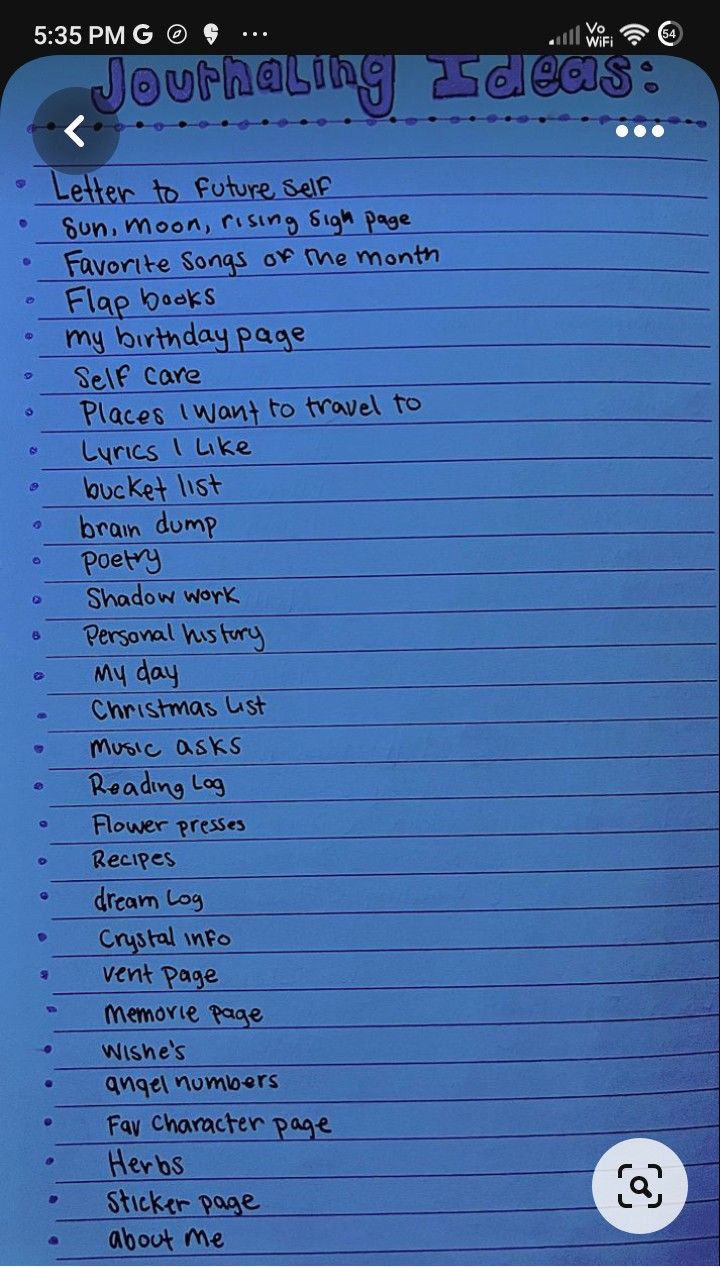 5:35 PM G ...
Vo
WiFi
54
Journaling Ideas:
Letter to Future Self
Sun, moon, rising sign page
Favorite Songs of The month
Flap books
my birthday page
Self care
Places I Want to travel to
Lyrics I Like
bucket list
brain dump
Poetry
Shadow work
Personal history
My day
Christmas List
Music asks
Reading Log
Flower presses
Recipes
dream Log
Crystal info
vent page
Memorie page
Wishe's
angel numbers
Fav Character page
Herbs
Sticker page
about Me